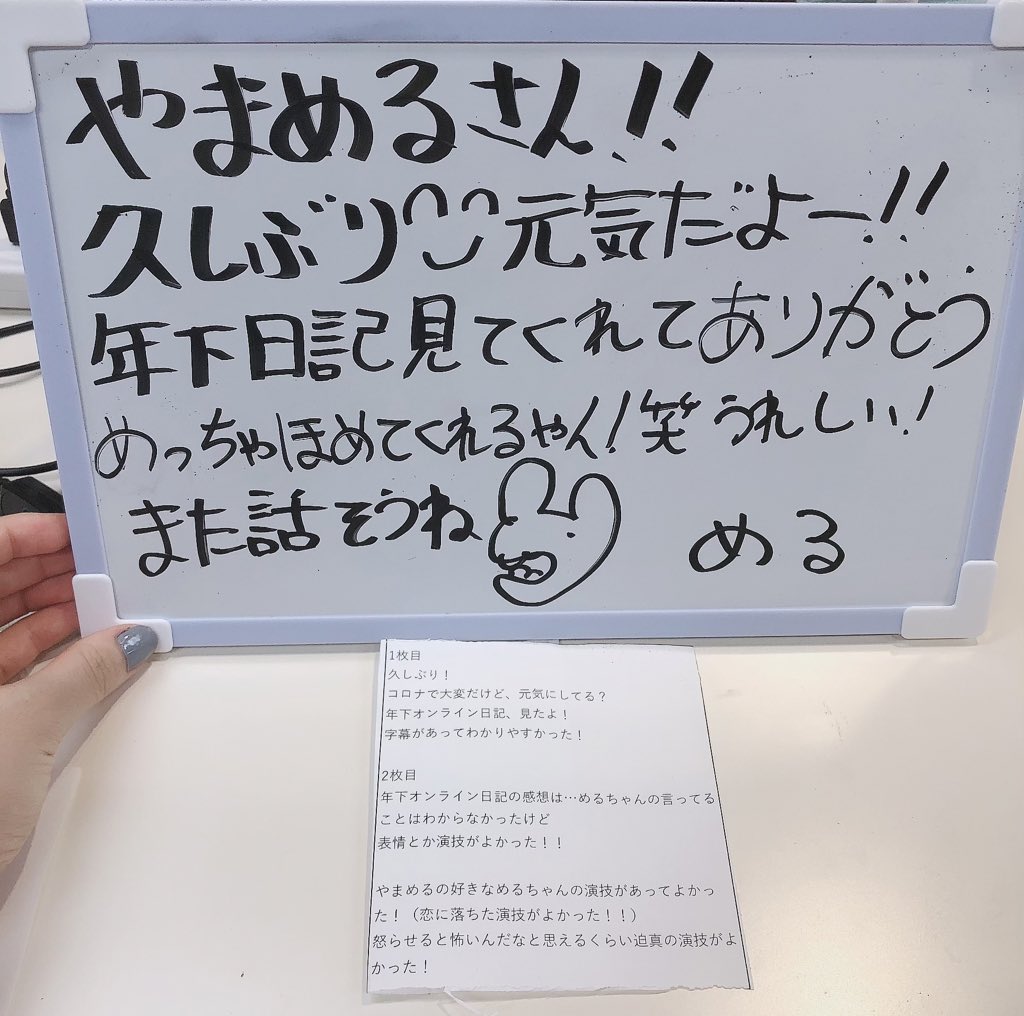 やまめるさん!!
久しぶり 元気だよー!!
年下日記見てくれてありがとう
めっちゃほめてくれるやん!笑 うれしい!
また話そうね
める
1枚目
久しぶり!
コロナで大変だけど、元気にしてる?
年下オンライン日記、見たよ!
字幕があってわかりやすかった!
2枚目
年下オンライン日記の感想は…めるちゃんの言ってる
ことはわからなかったけど
表情とか演技がよかった!!
やまめるの好きなめるちゃんの演技があってよかっ
た!(恋に落ちた演技がよかった!!)
怒らせると怖いんだなと思えるくらい迫真の演技がよ
かった!